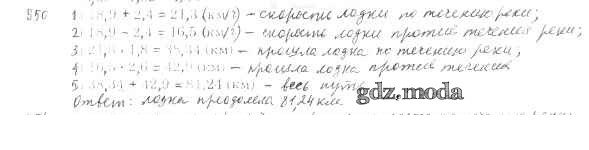 950 1) 18,9 + 2,4 = 21,3 (км/ч) – скорость лодки по течению реки;
2) 18,9 – 2,4 = 16,5 (км/ч) – скорость лодки против течения реки;
3) 21,3 · 1,8 = 38,34 (км) – прошла лодка по течению реки;
4) 16,5 · 2,6 = 42,9 (км) – прошла лодка против течения
5) 38,34 + 42,9 = 81,24 (км) – весь путь
Ответ: лодка преодолела 81,24 км
gdz.moda